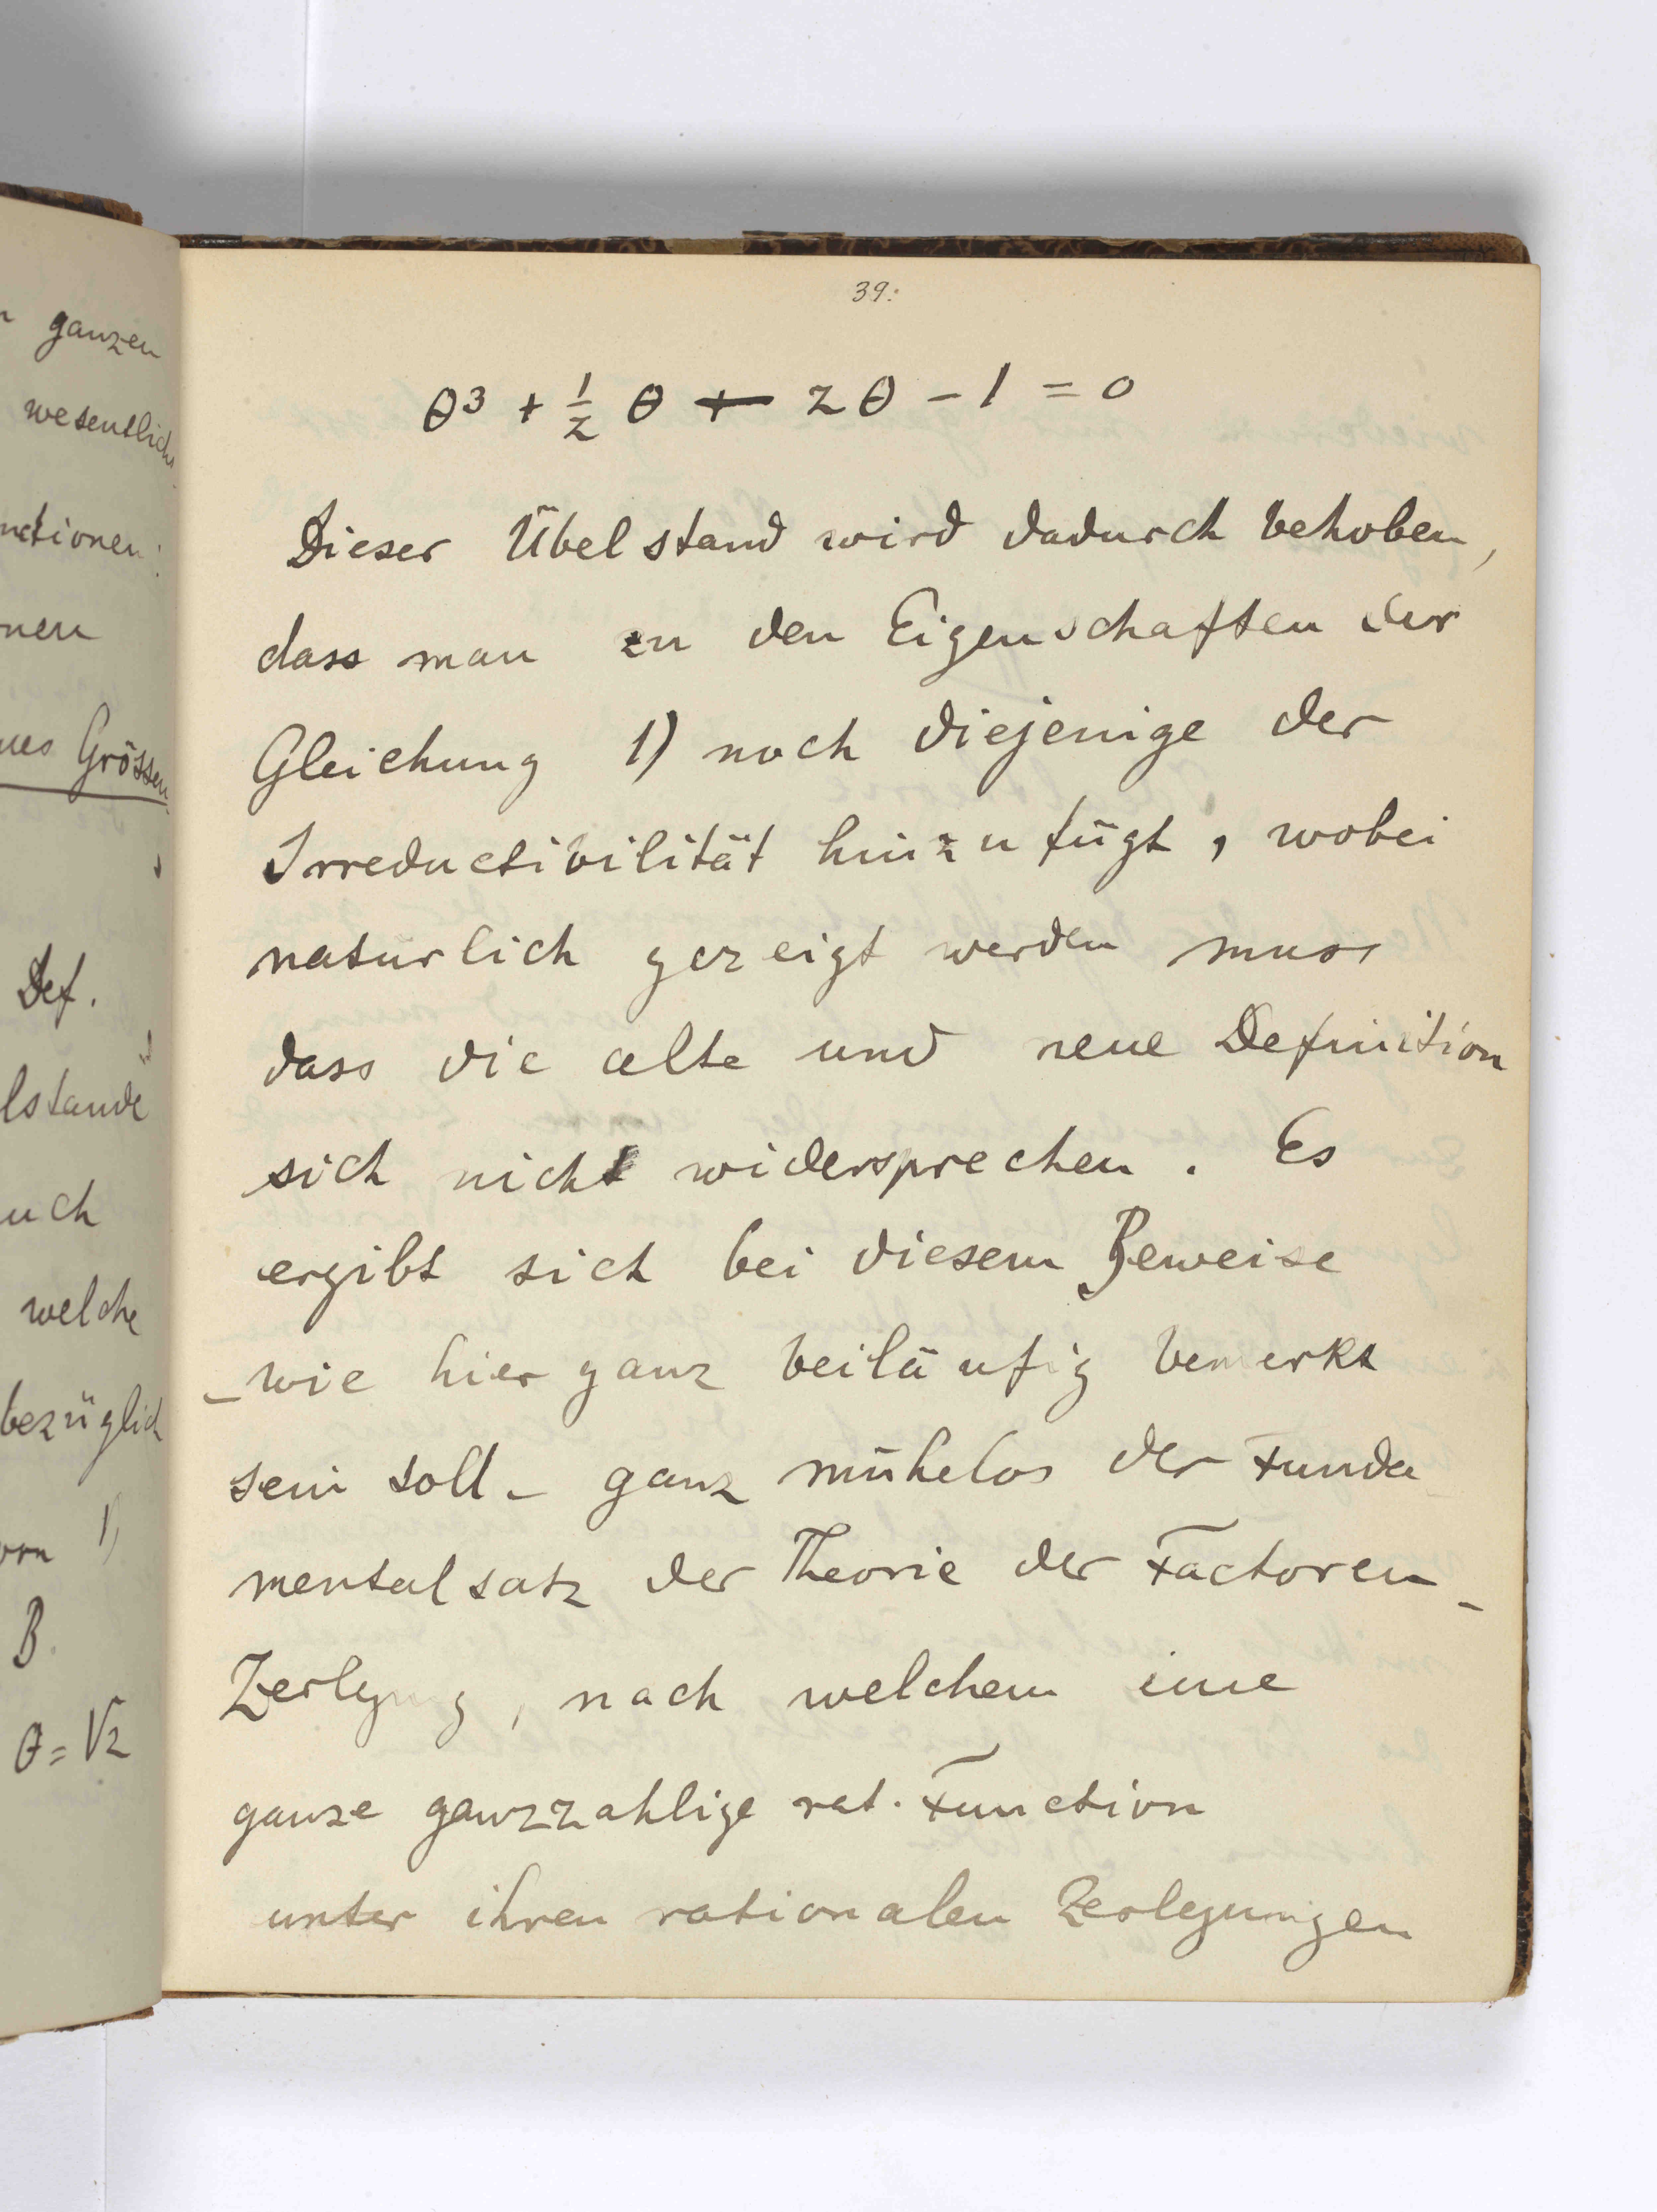 n ganzen
wesentlich
nctionen
nen
nes Grössen
Def.
lstande
uch
welche
bezüglich
von 1)
B.
θ = √2
39.
θ³ + ½ θ + 2θ - 1 = 0
Dieser Übelstand wird dadurch behoben,
dass man zu den Eigenschaften der
Gleichung 1) noch diejenige der
Irreductibilität hinzufügt, wobei
natürlich gezeigt werden muss
dass die alte und neue Definition
sich nicht widersprechen. Es
ergibt sich bei diesem Beweise
- wie hier ganz beiläufig bemerkt
sein soll - ganz mühelos der Funda-
mentalsatz der Theorie der Factoren-
Zerlegung, nach welchem eine
ganze ganzzahlige rat. Function
unter ihren rationalen Zerlegungen